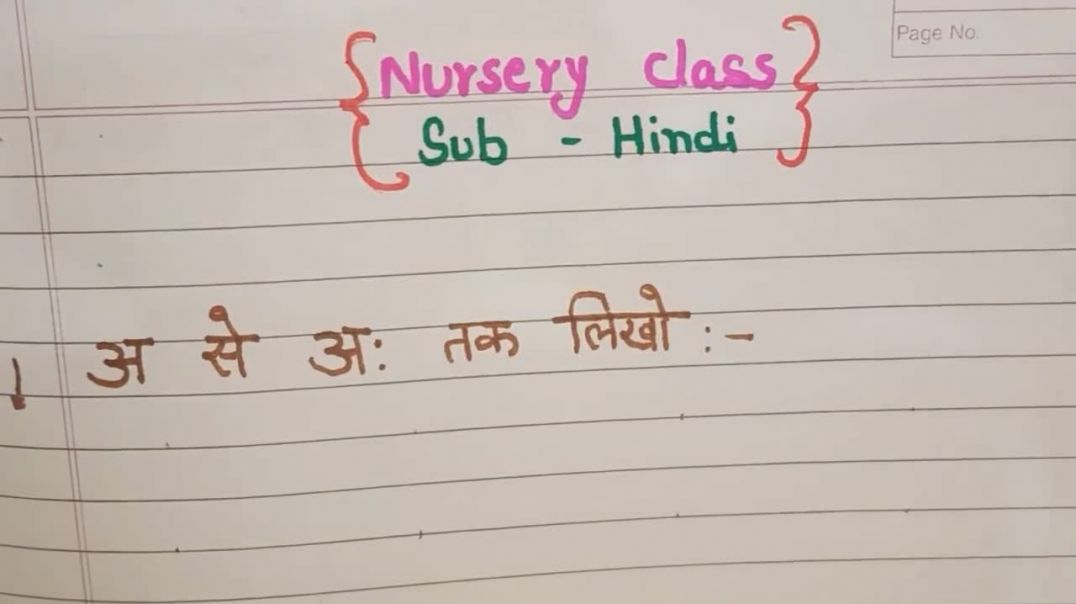 Page No.
{Nursery class}
Sub - Hindi
1 अ से अः तक लिखो :-